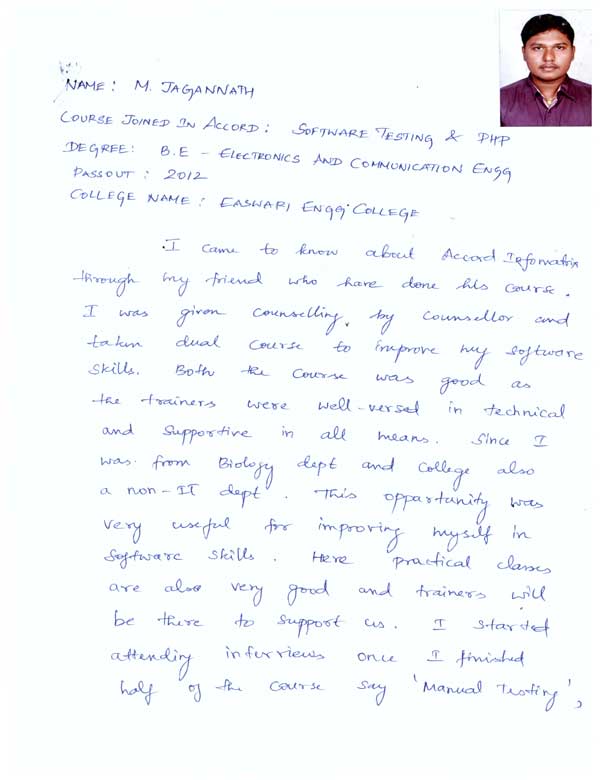 NAME: M. JAGANNATH
COURSE JOINED IN ACCORD: SOFTWARE TESTING & PHP
DEGREE: B.E - ELECTRONICS AND COMMUNICATION ENGG
PASSOUT: 2012
COLLEGE NAME: EASWARI ENGG COLLEGE
I came to know about Accord Infomatrix
through my friend who have done his course.
I was given counselling, by counsellor and
taken dual course to improve my software
skills. Both the course was good as
the trainers were well-versed in technical
and supportive in all means. Since I
was from Biology dept and college also
a non-IT dept. This oppartunity was
very useful for improving myself in
software skills. Here practical classes
are also very good and trainers will
be there to support us. I started
attending interviews once I finished
half of the course say 'Manual Testing',